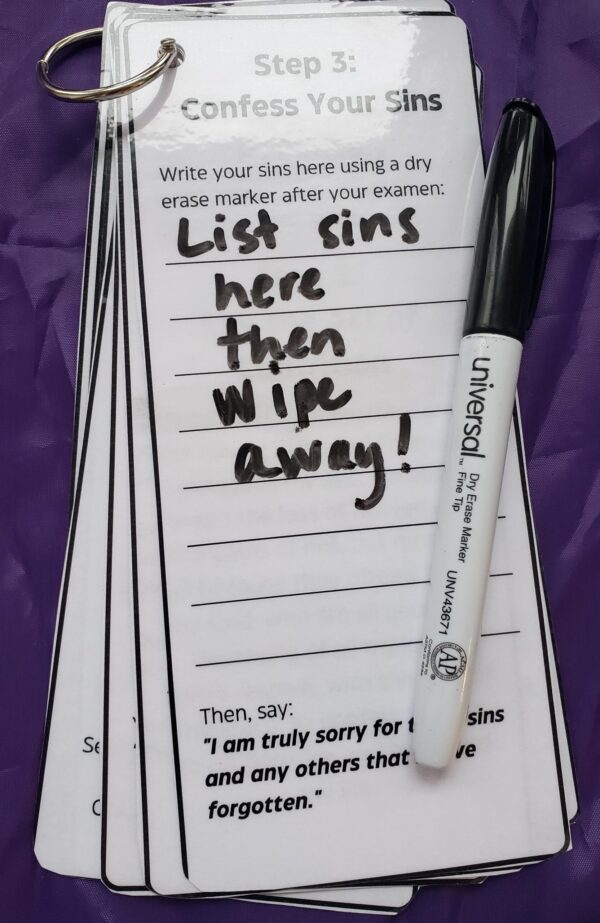 Step 3:
Confess Your Sins
Write your sins here using a dry
erase marker after your examen:
List sins
here
then
wipe
away!
Then, say:
"I am truly sorry for sins
and any others that
forgotten."
universal
Dry Erase Marker
Fine Tip
UNV43671
AP